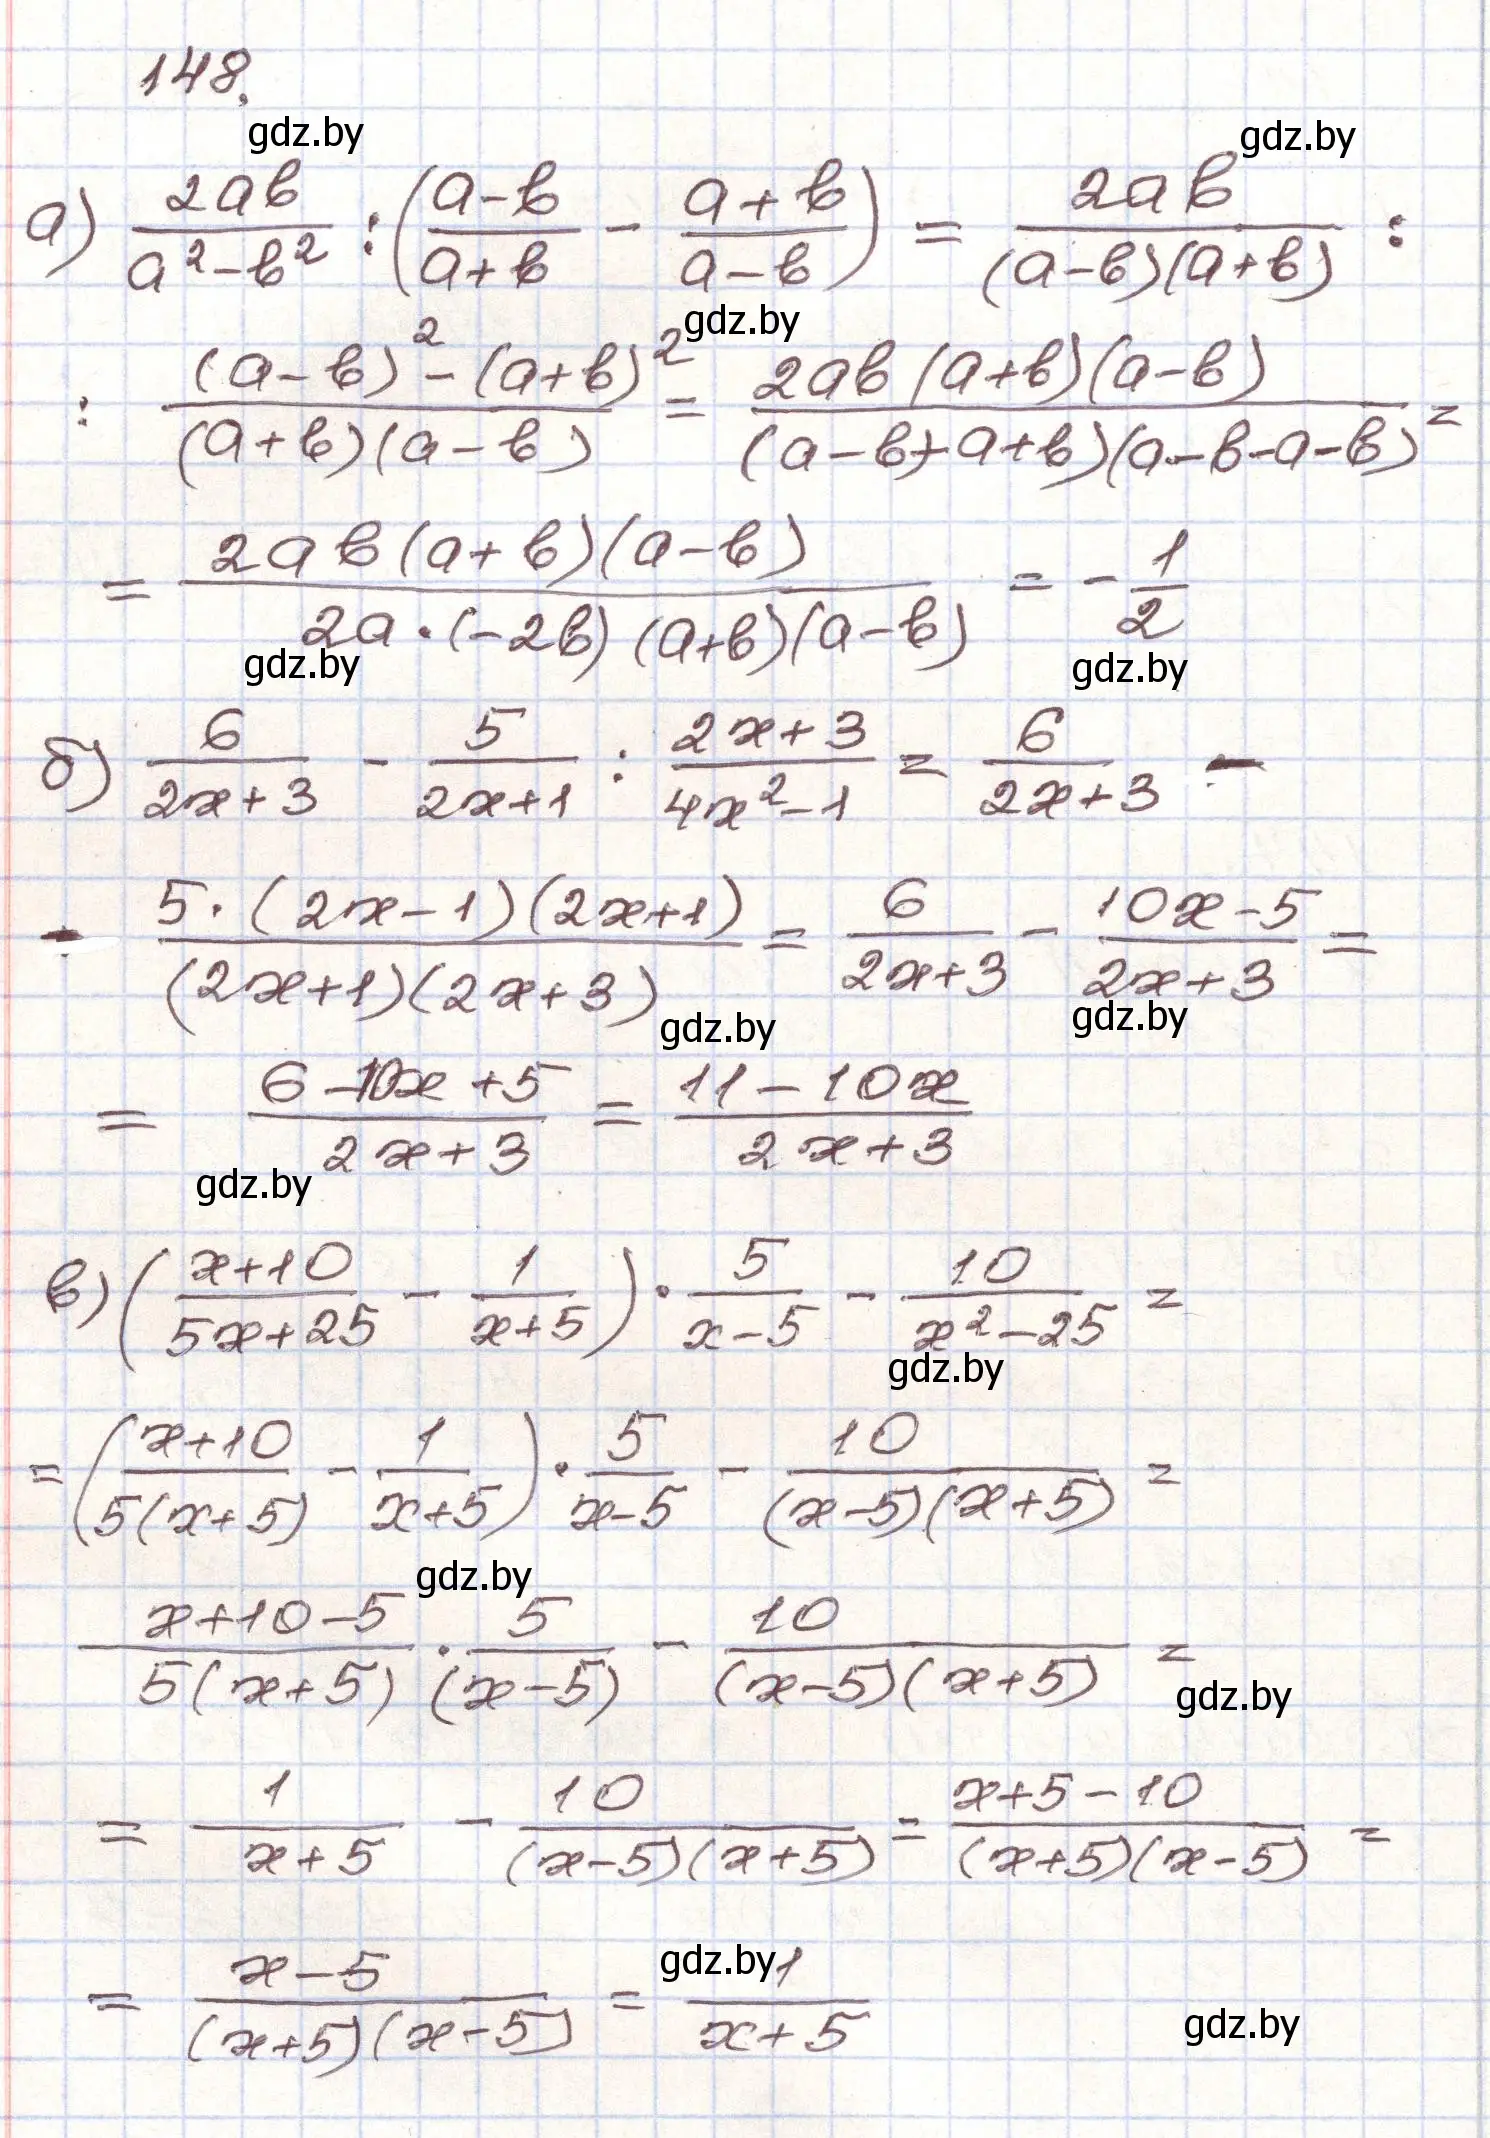 148.
gdz.by gdz.by
а) 2ab/(a²-b²) : ((a-b)/(a+b) - (a+b)/(a-b)) = 2ab/((a-b)(a+b)) :
gdz.by
: ((a-b)²-(a+b)²)/((a+b)(a-b)) = 2ab(a+b)(a-b)/((a-b+a+b)(a-b-a-b)) =
= 2ab(a+b)(a-b)/(2a·(-2b)(a+b)(a-b)) = -1/2
gdz.by gdz.by
б) 6/(2x+3) - 5/(2x+1) : (2x+3)/(4x²-1) = 6/(2x+3) -
- 5·(2x-1)(2x+1)/((2x+1)(2x+3)) = 6/(2x+3) - (10x-5)/(2x+3) =
gdz.by gdz.by
= (6-10x+5)/(2x+3) = (11-10x)/(2x+3)
gdz.by
в) ((x+10)/(5x+25) - 1/(x+5)) · 5/(x-5) - 10/(x²-25) =
gdz.by
= ((x+10)/(5(x+5)) - 1/(x+5)) · 5/(x-5) - 10/((x-5)(x+5)) =
gdz.by
(x+10-5)/(5(x+5)) · 5/(x-5) - 10/((x-5)(x+5)) =
gdz.by
= 1/(x+5) - 10/((x-5)(x+5)) = (x+5-10)/((x+5)(x-5)) =
gdz.by
= (x-5)/((x+5)(x-5)) = 1/(x+5)
gdz.by